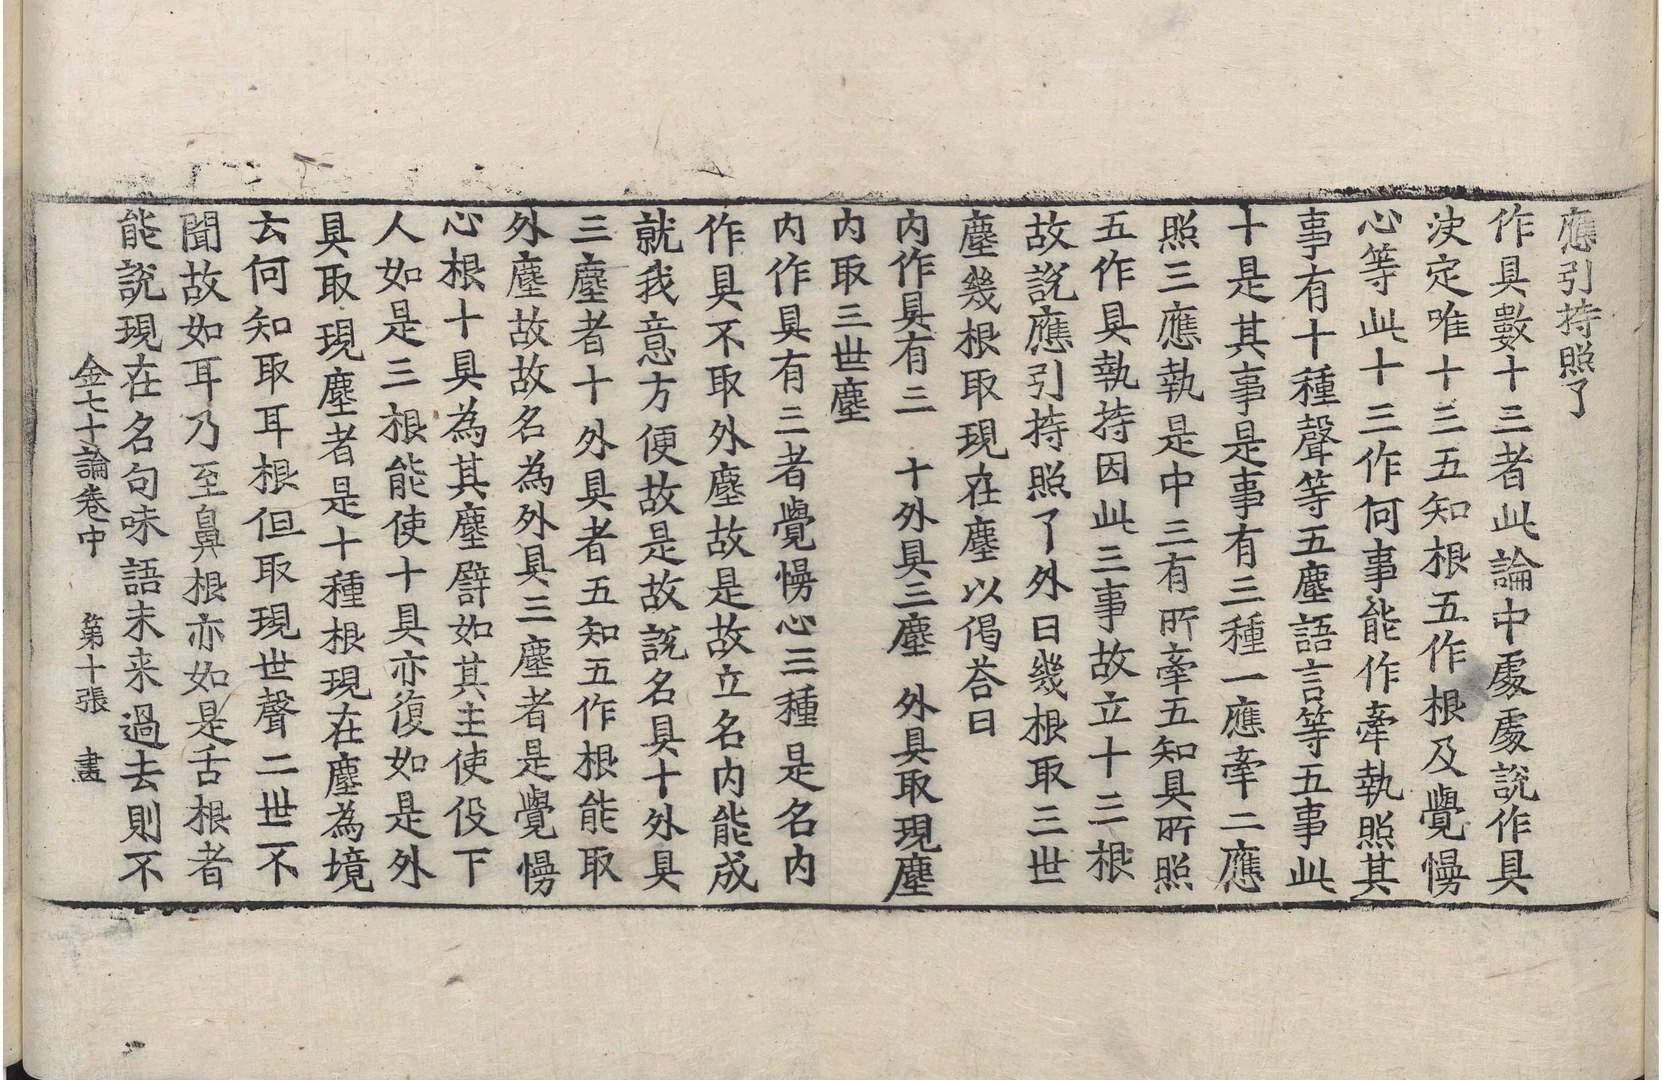 應引持照了
作具數十三者此論中處處說作具
決定唯十三五知根五作根及覺慢
心等此十三作何事能作牽執照其
事有十種聲等五塵語言等五事此
十是其事是事有三種一應牽二應
照三應執是中三有所牽五知具所照
五作具執持因此三事故立十三根
故說應引持照了外曰幾根取三世
塵幾根取現在塵以偈荅曰
內作具有三　十外具三塵　外具取現塵
內取三世塵
內作具有三者覺慢心三種是名內
作具不取外塵故是故立名內能成
就我意方便故是故說名具十外具
三塵者十外具者五知五作根能取
外塵故故名為外具三塵者是覺慢
心根十具為其塵譬如其主使役下
人如是三根能使十具亦復如是外
具取現塵者是十種根現在塵為境
云何知取耳根但取現世聲二世不
聞故如耳乃至鼻根亦如是舌根者
能說現在名句味語未来過去則不
金七十論卷中　第十張　畫